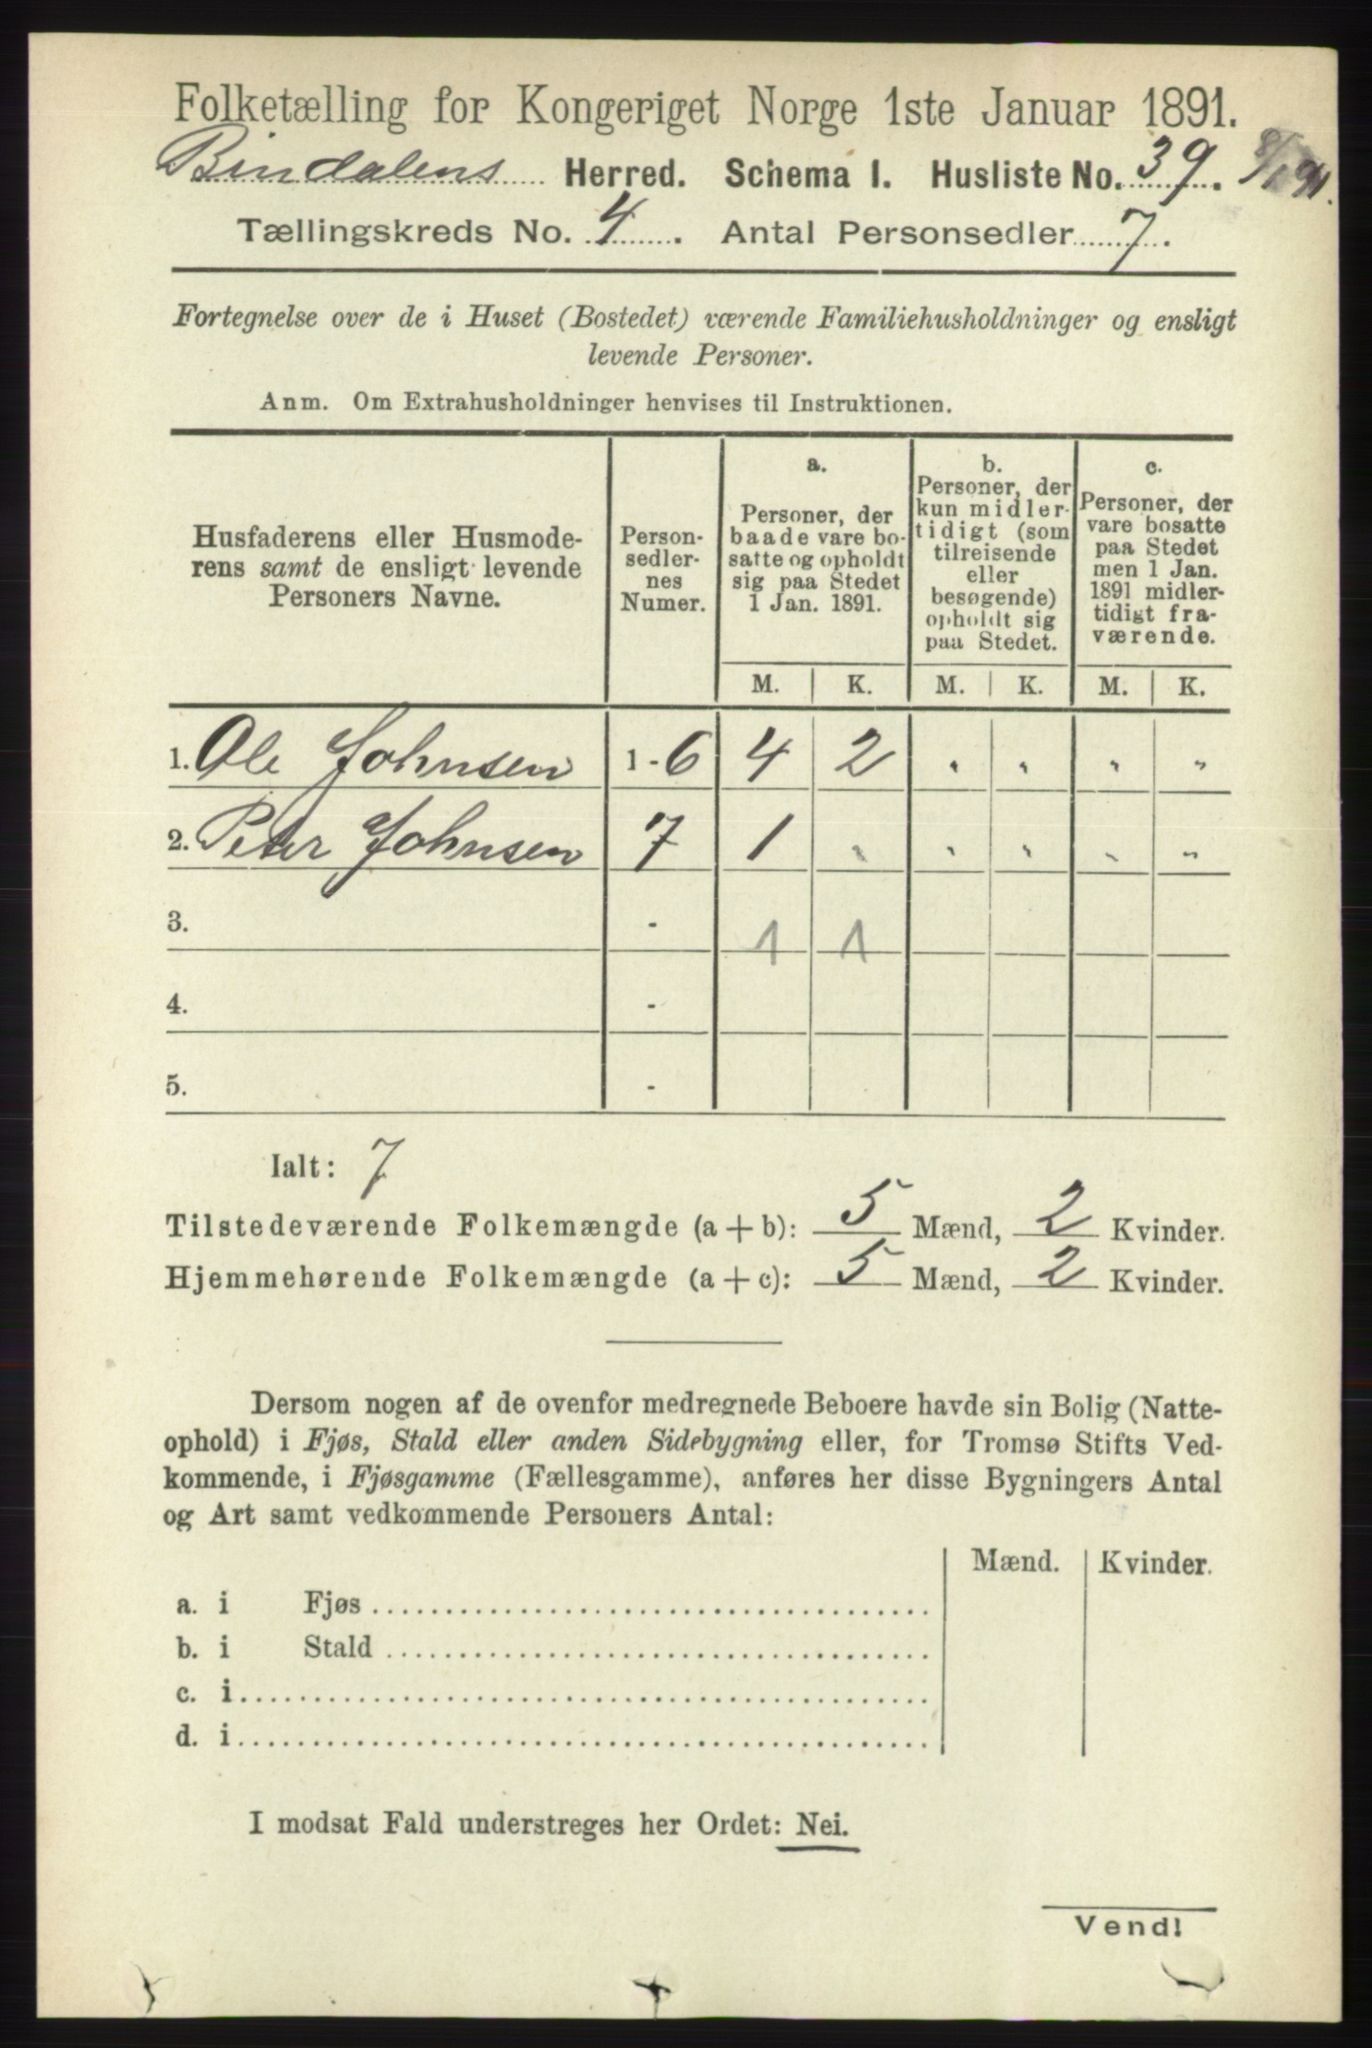 Folketælling for Kongeriget Norge 1ste Januar 1891.
Bindalens Herred. Schema I. Husliste No. 39. 8/1 91.
Tællingskreds No. 4. Antal Personsedler 7.
Fortegnelse over de i Huset (Bostedet) værende Familiehusholdninger og ensligt
levende Personer.
Anm. Om Extrahusholdninger henvises til Instruktionen.
Husfaderens eller Husmode-
rens samt de ensligt levende
Personers Navne.
Person-
sedler-
nes
Numer.
a.
Personer, der
baade vare bo-
satte og opholdt
sig paa Stedet
1 Jan. 1891.
b.
Personer, der
kun midler-
tidigt (som
tilreisende
eller
besøgende)
opholdt sig
paa Stedet.
c.
Personer, der
vare bosatte
paa Stedet
men 1 Jan.
1891 midler-
tidigt fra-
værende.
M. K. M. K. M. K.
1. Ole Johnsen 1-6 4 2 " " " "
2. Peter Johnsen 7 1 " " " " "
3. - 1 1
4. -
5. -
Ialt: 7
Tilstedeværende Folkemængde (a + b): 5 Mænd, 2 Kvinder.
Hjemmehørende Folkemængde (a + c): 5 Mænd, 2 Kvinder.
Dersom nogen af de ovenfor medregnede Beboere havde sin Bolig (Natte-
ophold) i Fjøs, Stald eller anden Sidebygning eller, for Tromsø Stifts Ved-
kommende, i Fjøsgamme (Fællesgamme), anføres her disse Bygningers Antal
og Art samt vedkommende Personers Antal:
Mænd. Kvinder.
a. i Fjøs
b. i Stald
c. i
d. i
I modsat Fald understreges her Ordet: Nei.
Vend!